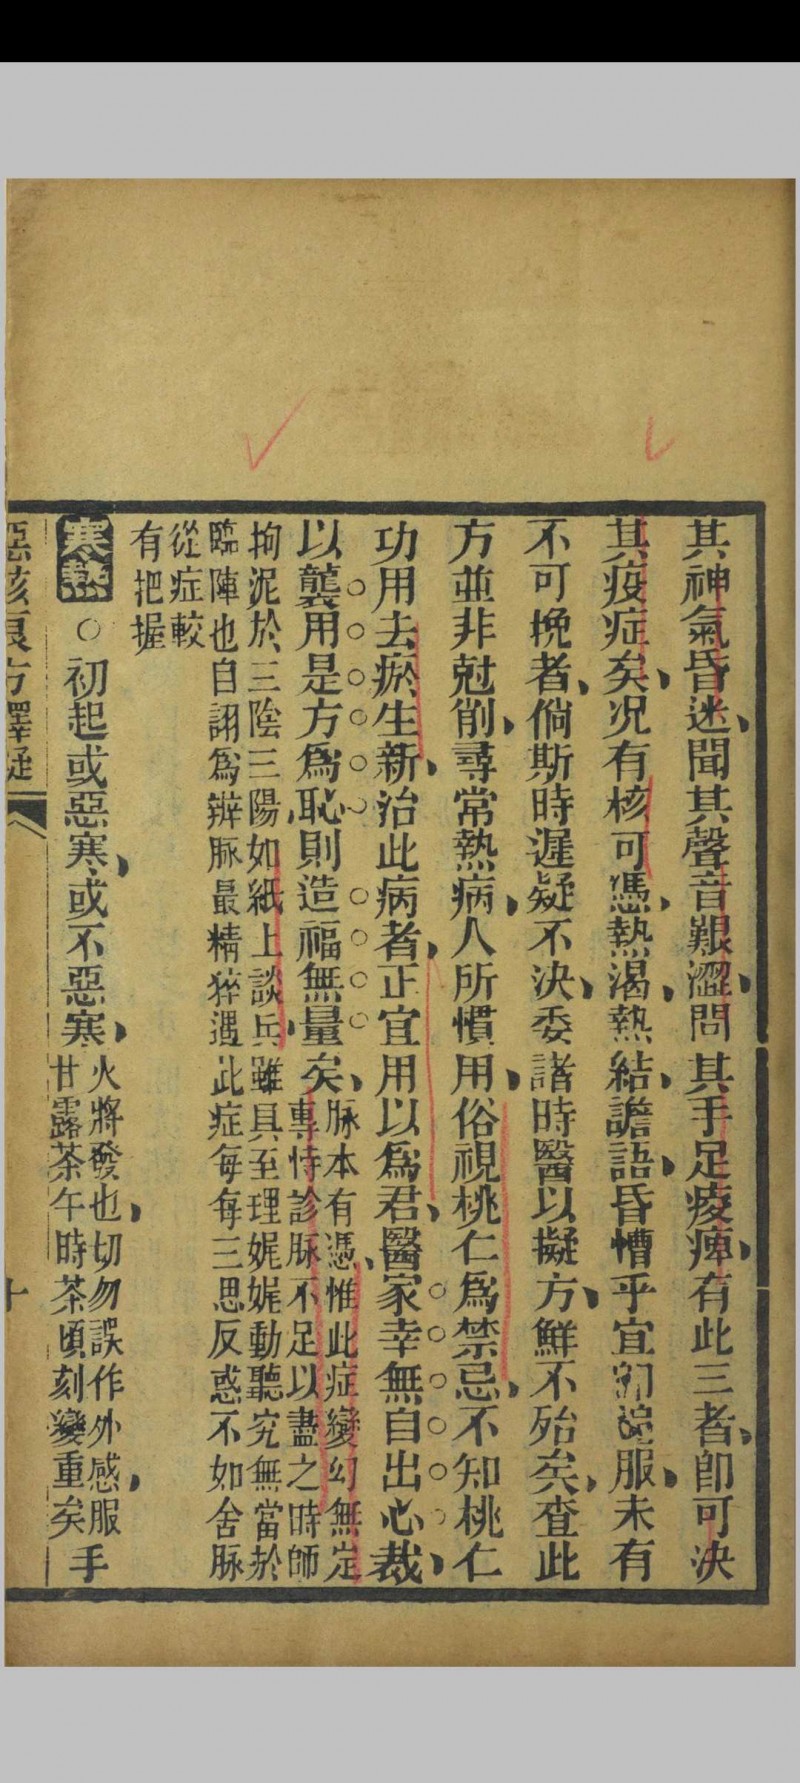 其神氣昏迷聞其聲音艱澀問其手足痠痺有此三者卽可決
其疫症矣况有核可憑熱渴熱結譫語昏懵乎宜卽服未有
不可挽者倘斯時遲疑不決委諸時醫以擬方鮮不殆矣査此
方並非尅削尋常熱病人所慣用俗視桃仁爲禁忌不知桃仁
功用去瘀生新治此病者正宜用以爲君醫家幸無自出心裁
以襲用是方爲恥則造福無量矣
脉本有憑惟此症變幻無定
專恃診脉不足以盡之時師
拘泥於三陰三陽如紙上談兵雖具至理娓娓動聽究無當於
臨陣也自詡爲辨脉最精猝遇此症每每三思反惑不如舍脉
從症較
有把握
寒熱○初起或惡寒或不惡寒
火將發也切勿誤作外感服
甘露茶午時茶頃刻變重矣
手
惡核良方釋疑
十